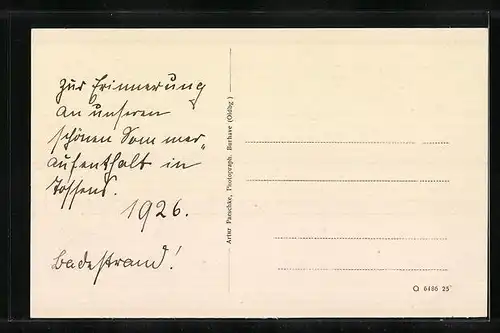 Zur Erinnerung
an unseren
schönen Sommer„
aufenthalt in
Tossens.
1926.
Badestrand!
Artur Patschke, Photograph. Burhave (Oldbg.)
O 6486 25